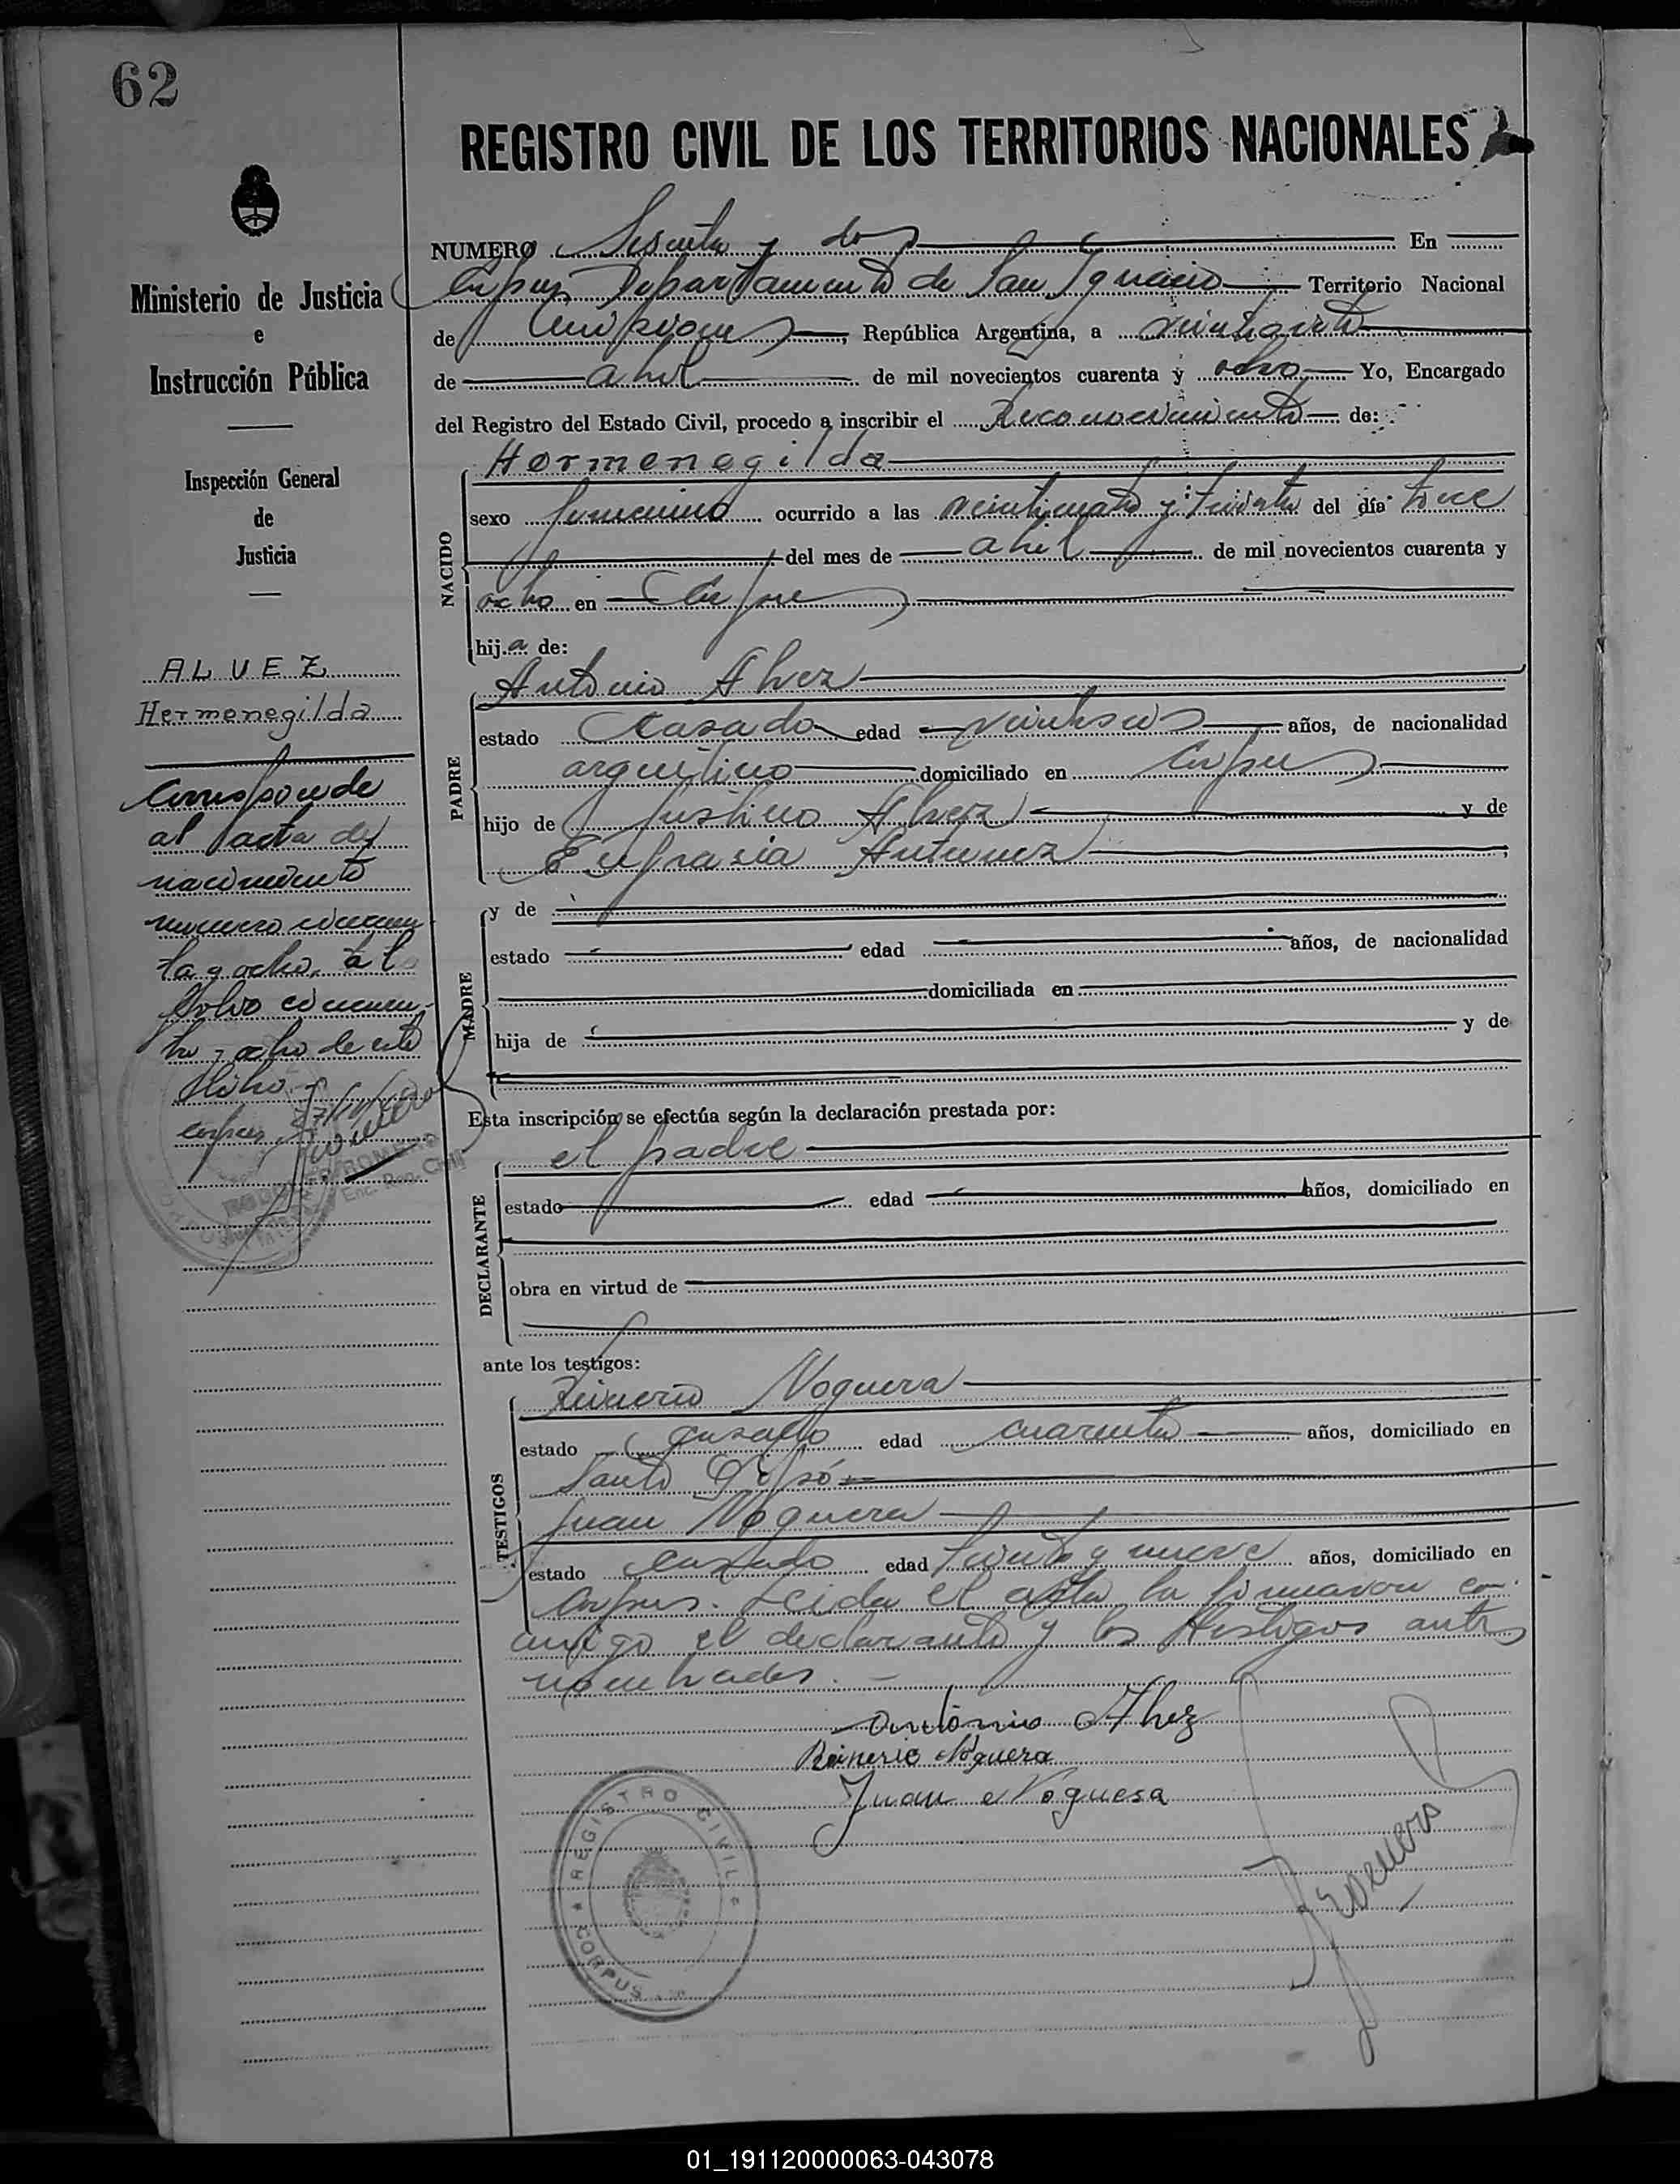 62
REGISTRO CIVIL DE LOS TERRITORIOS NACIONALES
Ministerio de Justicia
e
Instrucción Pública
Inspección General
de
Justicia
ALVEZ
Hermenegilda
Corresponde
al acta de
nacimiento
numero cincuen
ta y ocho, al
folio cincuen-
ta y ocho de este
libro.
Corpus
NUMERO Sesenta y dos En
Corpus Departamento de San Ignacio Territorio Nacional
de Misiones, República Argentina, a veintisiete
de abril de mil novecientos cuarenta y ocho Yo, Encargado
del Registro del Estado Civil, procedo a inscribir el Reconocimiento de:
Hermenegilda
NACIDO
sexo femenino ocurrido a las veinticuatro y treinta del día trece
del mes de abril de mil novecientos cuarenta y
ocho en Corpus
hija de:
Antonio Alvez
PADRE
estado casado edad veintiseis años, de nacionalidad
argentino domiciliado en Corpus
hijo de Justino Alvez y de
Eufrasia Antunez
MADRE
y de
estado edad años, de nacionalidad
domiciliada en
hija de y de
Esta inscripción se efectúa según la declaración prestada por:
el padre
DECLARANTE
estado edad años, domiciliado en
obra en virtud de
ante los testigos:
Reinerio Noguera
TESTIGOS
estado casado edad cuarenta años, domiciliado en
Santo Pipó
Juan Noguera
estado casado edad treinta y nueve años, domiciliado en
Corpus. Leida el acta la firmaron con
migo el declarante y los testigos antes
nombrados.
Antonio Alvez
Reinerio Noguera
Juan Noguera
JRomero
REGISTRO CIVIL
CORPUS
01_191120000063-043078